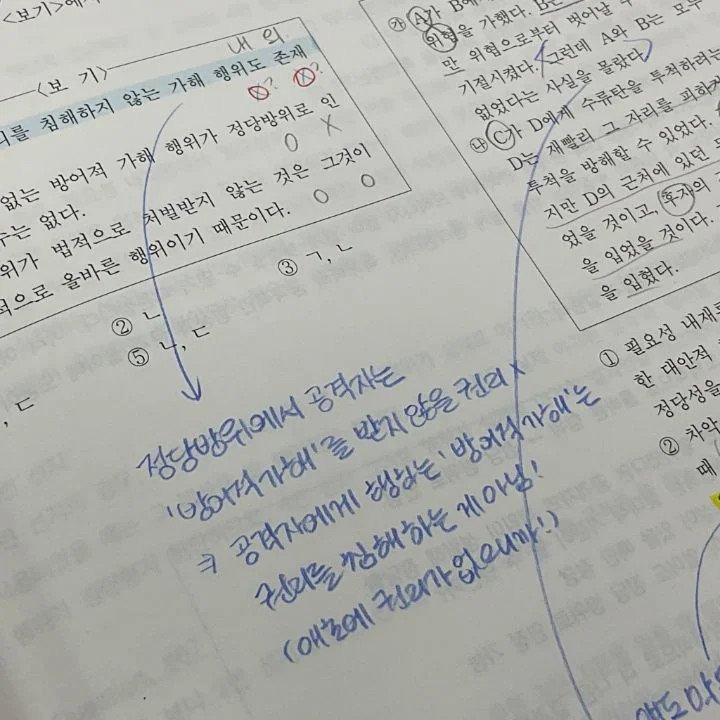 <보기>에
<보 기>
내 외
리를 침해하지 않는 가해 행위도 존재
없는 방어적 가해 행위가 정당방위로 인
수는 없다.
위가 법적으로 처벌받지 않는 것은 그것이
적으로 올바른 행위이기 때문이다.
② ㄴ
③ ㄱ, ㄴ
, ㄷ
⑤ ㄴ, ㄷ
정당방위에서 공격자는
'방어적가해'를 받지않을 권리 x
⇒ 공격자에게 행하는 '방어적가해'는
권리를 침해하는 게 아님!
(애초에 권리가 없으니까!)
㉮ A가 B에
위협을 가했다. B는
만 위협으로부터 벗어날 수
기절시켰다. 그런데 A와 B는 모두
없었다는 사실을 몰랐다.
㉯ C가 D에게 수류탄을 투척하려는
D는 재빨리 그 자리를 피하
투척을 방해할 수 있었다.
지만 D의 근처에 있던
었을 것이고, 후자의
을 입었을 것이다.
을 입혔다.
① 필요성 내재
한 대안적
정당성을
② 차악
때